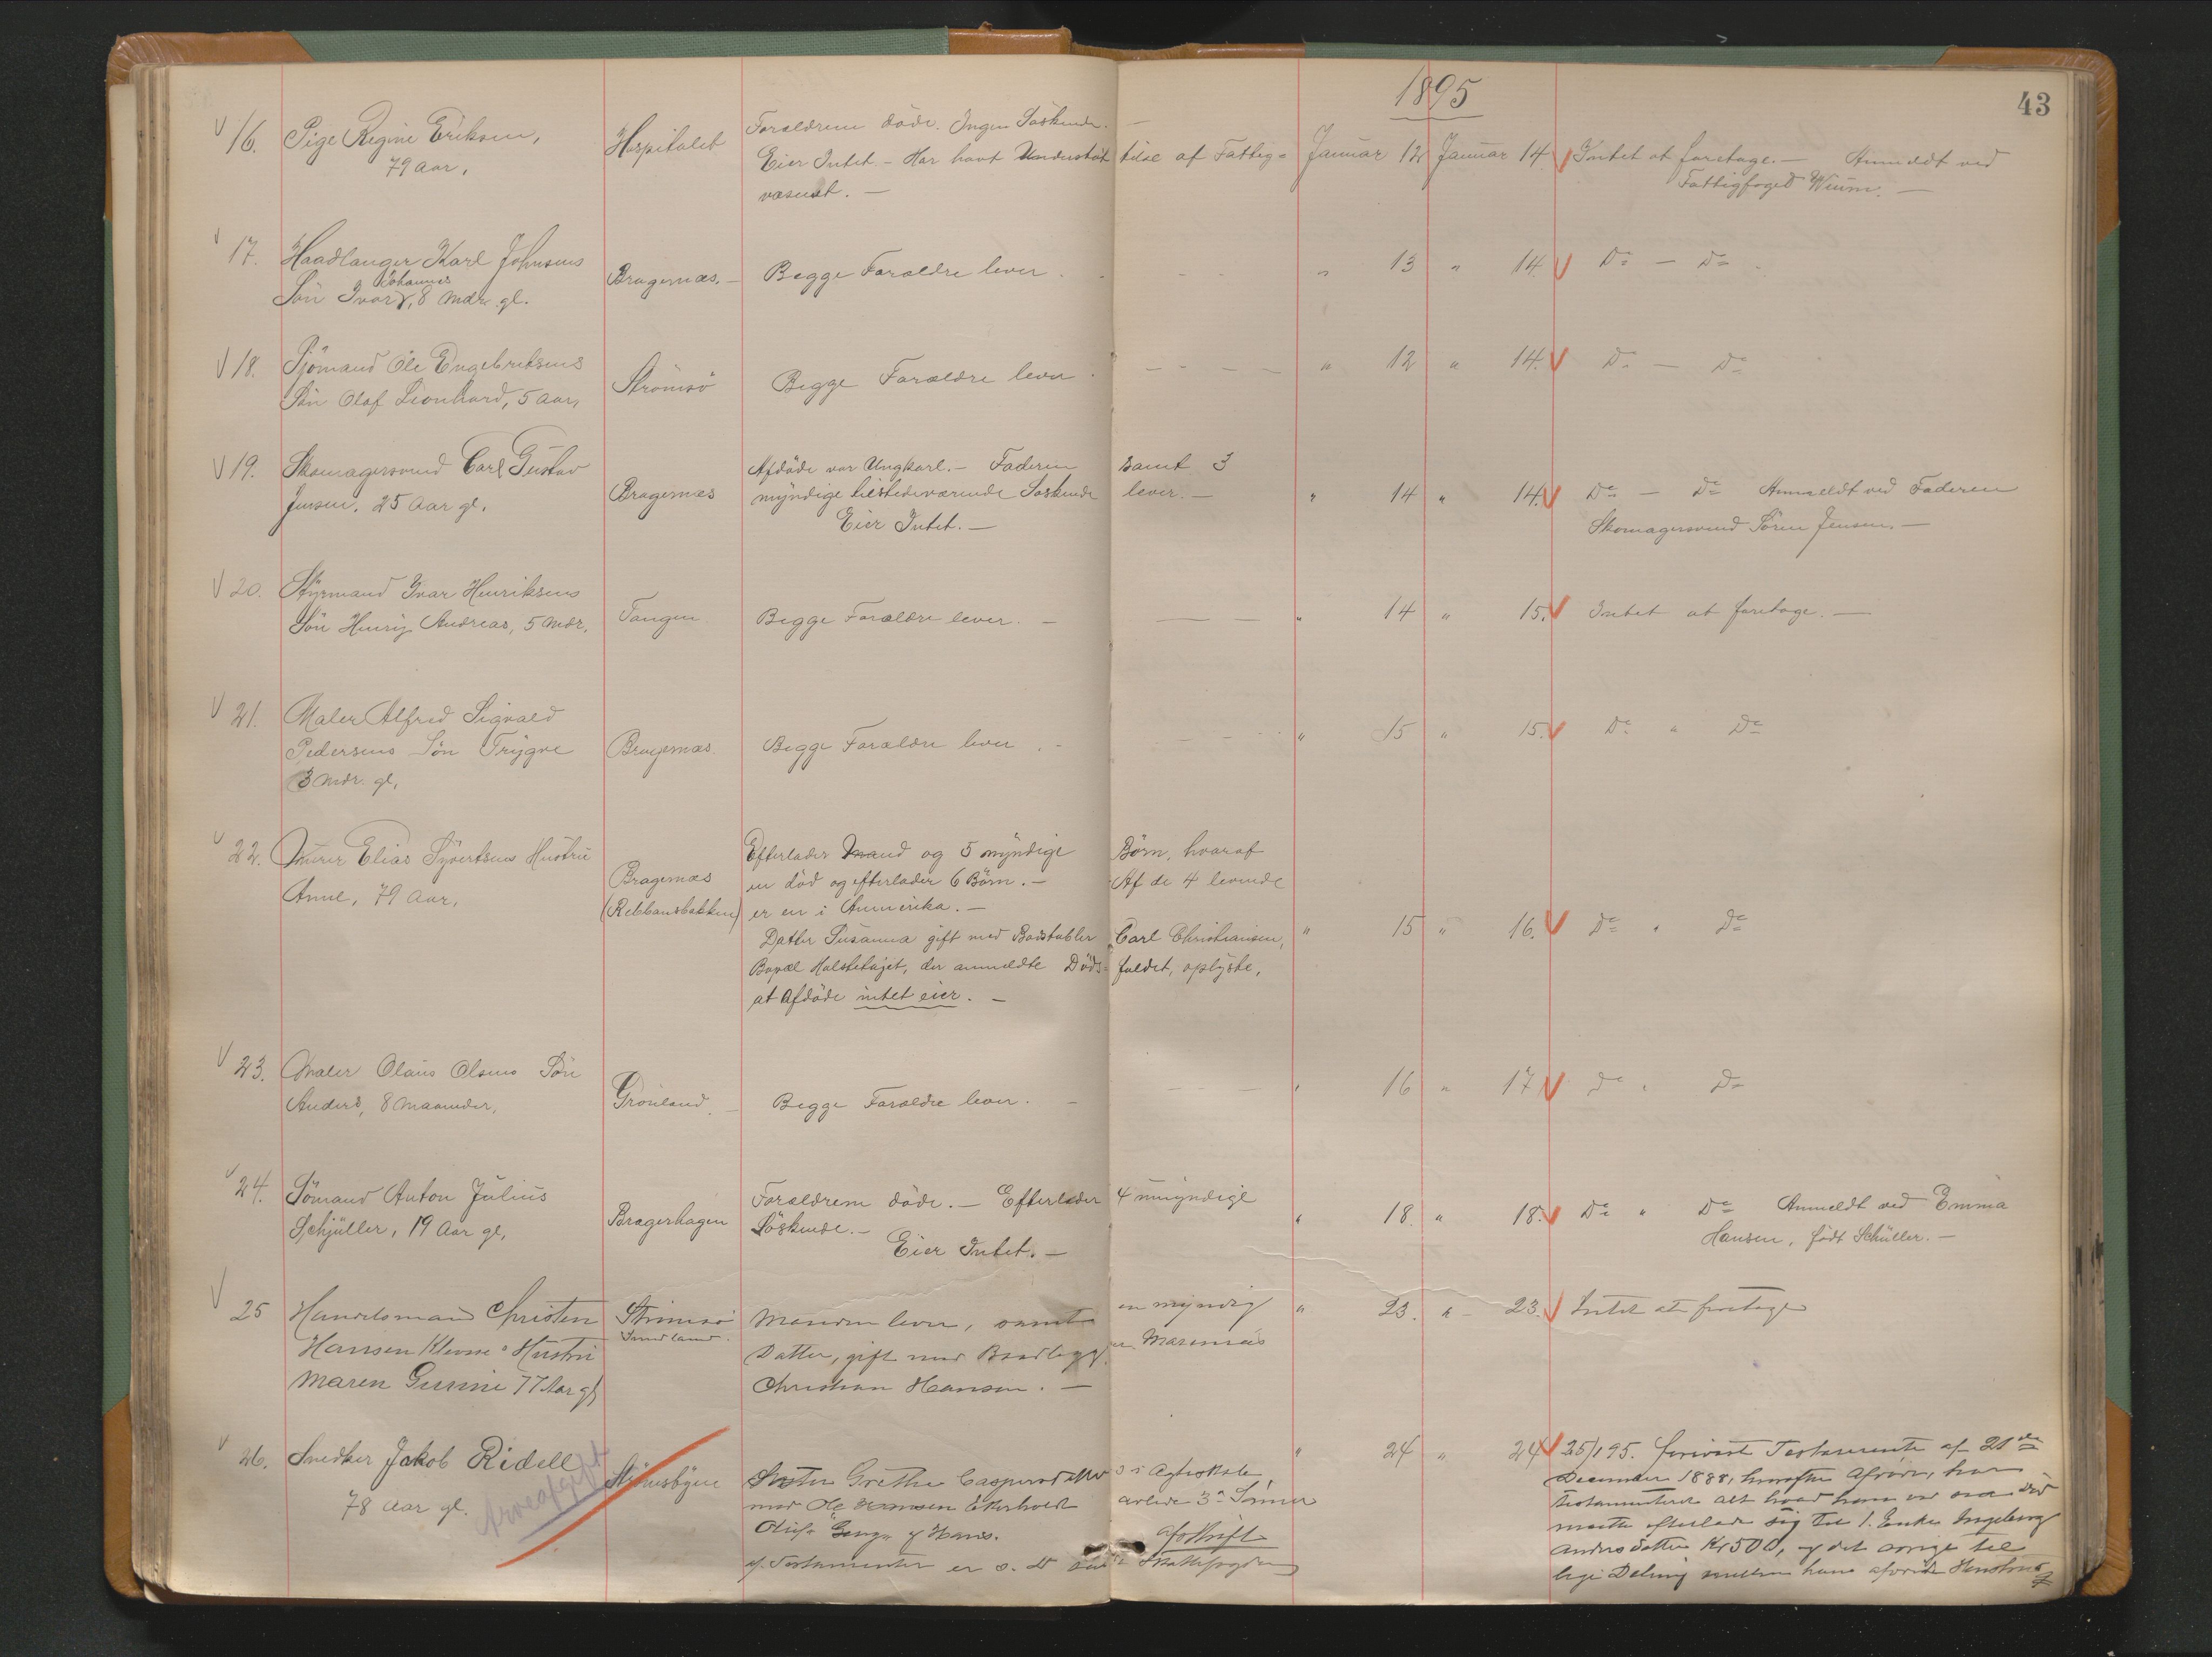 1895
43
16. Pige Regine Eriksen,
79 Aar.
Hospitalet
Forældrene døde. Ingen Søskende. —
Eier Intet. – Har havt Understøttelse af Fattig=
væsenet. —
Januar 12 Januar 14. Intet at foretage. — Anmeldt ved
Fattigfoged Wium. —
17. Haadlanger Karl Johnsens
Søn Ivar Johannes, 8 Mdr. gl.
Bragernæs. — Begge Forældre lever. " 13 " 14. Do — Do
18. Sjömand Ole Engebretsens
Sön Olaf Leonhard, 5 Aar,
Strömsö Begge Forældre lever. " 12 " 14. Do — Do
19. Skomagersvend Carl Gustav
Jensen. 25 Aar gl.
Bragernæs
Afdöde var Ungkarl. – Faderen samt 3
myndige tilstedeværende Søskende lever. —
Eier Intet. —
" 14 " 14. Do — Do Anmeldt ved Faderen
Skomagersvend Sören Jensen. —
20. Styrmand Ivar Henriksens
Sön Henry Andreas, 5 Mdr.
Tangen Begge Forældre lever. — " 14 " 15. Intet at foretage. —
21. Maler Alfred Sigvald
Pedersens Sön Trygve
3 Mdr. gl.
Bragernæs. Begge Forældre lever. " 15 " 15. Do " Do
22. Murer Elias Syvertsens Hustru
Anne, 79 Aar,
Bragernæs
(Rebbansbakken)
Efterlader Mand og 5 myndige Börn, hvoraf
en död og efterlader 6 Börn. — Af de 4 levende
er en i Ammerika. —
Datter Susanna gift med Carl Christiansen,
Bopæl, der anmeldte Döds=faldet, oplyste,
at Afdöde intet eier. —
" 15 " 16. Do " Do
23. Maler Olaus Olsens Sön
Anders, 8 Maaneder,
Grönland. Begge Forældre lever. — " 16 " 17 Do " Do
24. Sömand Anton Julius
Schjüller, 19 Aar gl,
Bragerhagen
Forældrene döde. — Efterlader 4 umyndige
Söskende. —
Eier Intet. —
" 18. " 18. Do " Do Anmeldt ved Emma
Hansen, födt Schüller. —
25 Handelsmand Christen
Hansen Hustru
Maren Gurine 77 Aar gl
Strömsö
Manden lever, samt en myndig
Datter, gift med Marenius
Christian Hansen. —
" 23. " 23. Intet at foretage
26. Snedker Jakob Ridell
78 Aar gl.
Arveafgift
Söster Grethe
med Ole Hansen 3 Sönner
og Hans.
Afskrift
af Testamentet er
" 24 " 24 25/1 95. Testamente af 21de
December 1888, hvorefter Afdöde, har
testamenteret alt hvad han
maatte efterlade sig til 1. Enke Ingeborg
Andersdatter Kr 500, og det övrige til
lige Deling mellem hans afdöde Hustrus